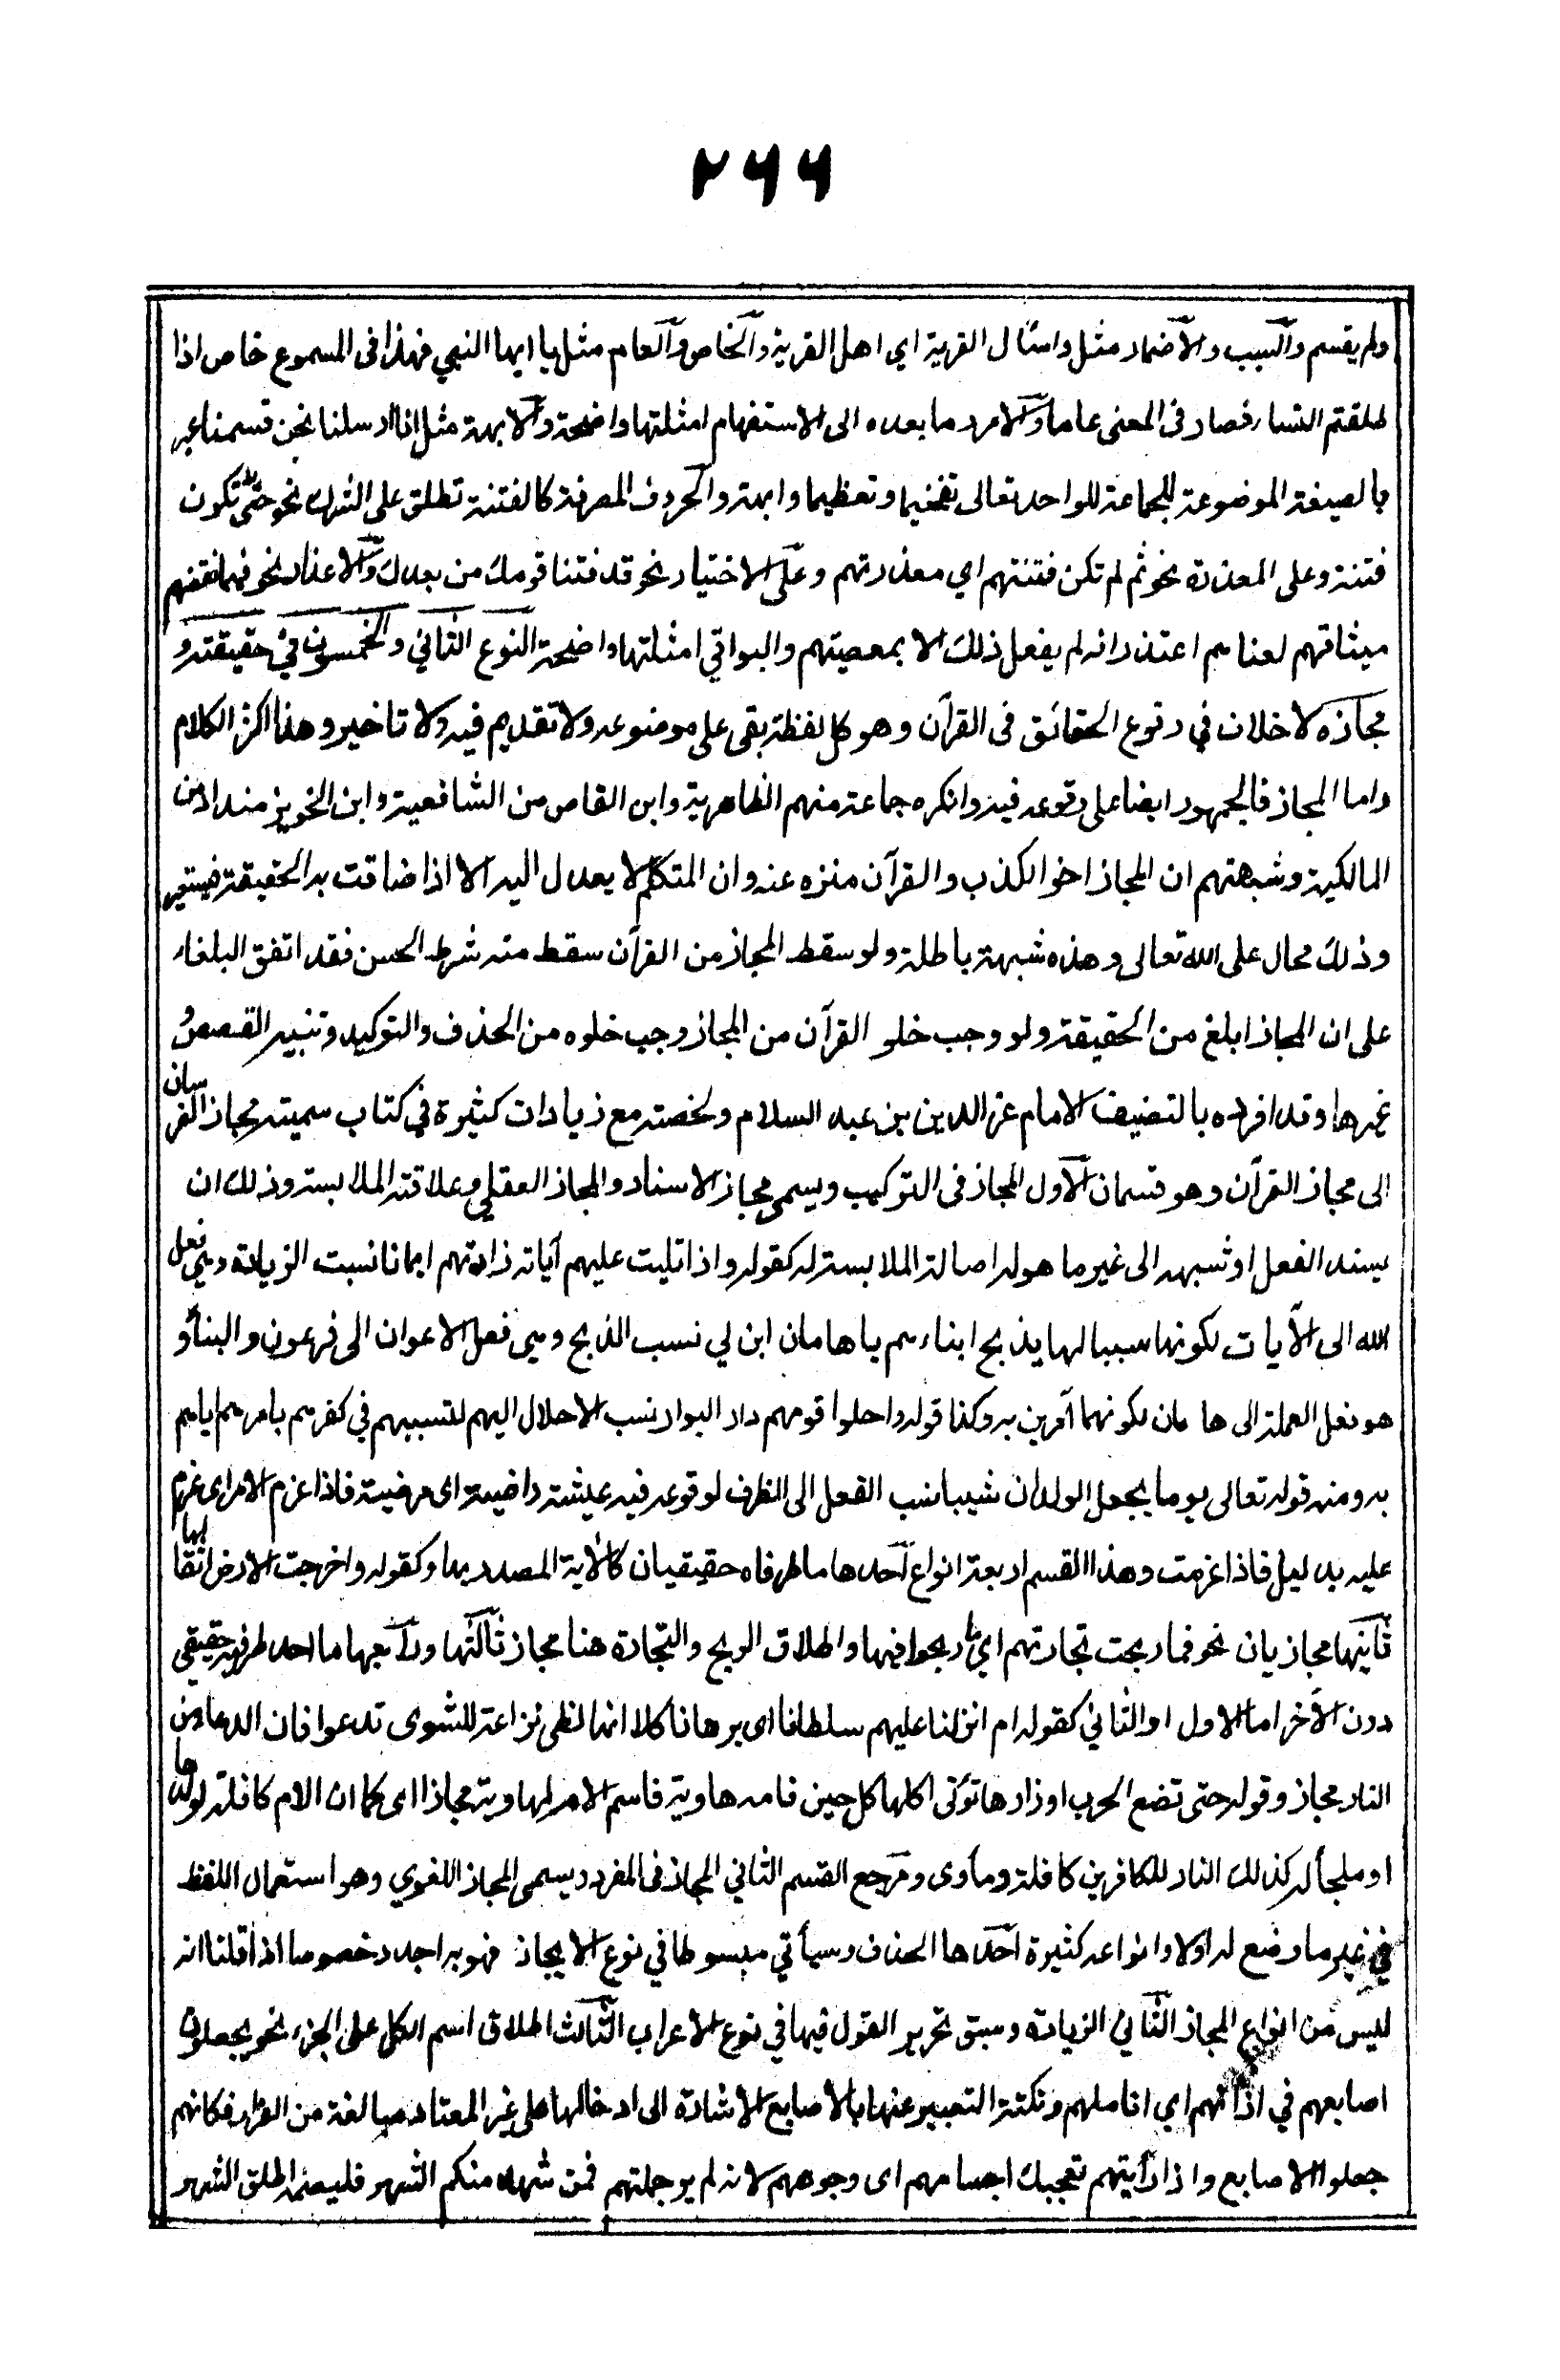 ٢٦٦
ولم يقسم والسبب والاضمار مثل واسئال القرية اي اهل القرية والخاص والعام مثل يا ايها النبي فهذا فى المسموع خاص اذا
طلقتم النساء فصار فى المعنى عاما والامر وما بعده الى الاستفهام امثلتها واضحة والابهة مثل انا ارسلنا نحن قسمنا عبر
بالصيغة الموضوعة للجماعة للواحد تعالى تفخيما وتعظيما وابهة والحروف المصرفة كالفتنة تطلق على الشرك نحو حتى لا تكون
فتنة وعلى المعذرة نحو ثم لم تكن فتنتهم اي معذرتهم وعلى الاختيار نحو قد فتنا قومك من بعدك والاعذار نحو فبما نقضهم
ميثاقهم لعناهم اعتذر انه لم يفعل ذلك الا بمعصيتهم والبواقي امثلتها واضحة النوع الثاني والخمسون في حقيقته و
مجازه لا خلاف في وقوع الحقائق فى القرآن وهو كل لفظة بقى على موضوعه ولا تقديم فيه ولا تاخير وهذا اكثر الكلام
واما المجاز فالجمهور ايضا على وقوعه فيه وانكره جماعة منهم الظاهرية وابن القاص من الشافعية وابن الخويز منداد من
المالكية وشبهتهم ان المجاز اخو الكذب والقرآن منزه عنه وان المتكلم لا يعدل اليه الا اذا ضاقت به الحقيقة فيستعير
وذلك محال على الله تعالى وهذه شبهة باطلة ولو سقط المجاز من القرآن سقط منه شطر الحسن فقد اتفق البلغاء
على ان المجاز ابلغ من الحقيقة ولو وجب خلو القرآن من المجاز وجب خلوه من الحذف والتوكيد وتثنيه القصص و
غيرها وقد افرده بالتصنيف الامام عز الدين بن عبد السلام ولخصته مع زيادات كثيرة في كتاب سميته مجاز الفرسان
الى مجاز القرآن وهو قسمان الاول المجاز فى التركيب ويسمى مجاز الاسناد والمجاز العقلي وعلاقته الملابسة وذلك ان
يسند الفعل او شبهه الى غير ما هو له اصالة الملابسته له كقوله واذا تليت عليهم آياته زادتهم ايمانا نسبت الزيادة وهي فعل
الله الى الآيات لكونها سببا لها يذبح ابناءهم يا هامان ابن لي نسب الذبح وهى فعل الاعوان الى فرعون والبناء و
هو فعل العملة الى هامان لكونهما آمرين به وكذا قوله واحلوا قومهم دار البوار نسب الاحلال اليهم لتسببهم في كفرهم بامرهم اياهم
به ومنه قوله تعالى يوما يجعل الولدان شيبا نسب الفعل الى الظرف لوقوعه فيه عيشة راضية اى مرضية فاذا عزم الامر اى عزم
عليه بدليل فاذا عزمت وهذا القسم اربعة انواع احدها ما طرفاه حقيقيان كالآية المصدر بها وكقوله واخرجت الارض اثقالها
ثانيها مجازيان نحو فما ربحت تجارتهم اي ما ربحوا فيها واطلاق الربح والتجارة هنا مجاز ثالثها ورابعها ما احد طرفيه حقيقى
دون الآخر اما الاول او الثاني كقوله ام انزلنا عليهم سلطانا اى برهانا كلا انها لظى نزاعة للشوى تدعوا فان الدعاء من
النار مجاز وقوله حتى تضع الحرب اوزارها تؤتى اكلها كل حين فامه هاوية فاسم الام لهاوية مجازا اى كما ان الام كافلة لولدها
او ملجأ له كذلك النار للكافرين كافلة ومأوى ومرجع القسم الثاني المجاز فى المفرد ويسمى المجاز اللغوي وهو استعمال اللفظ
في غير ما وضع له اولا وانواعه كثيرة احدها الحذف وسيأتي مبسوطا في نوع الايجاز فهو به اجدر خصوصا اذا قلنا انه
ليس من انواع المجاز الثاني الزيادة وسبق تحرير القول فيها في نوع الاعراب الثالث اطلاق اسم الكل على الجزء نحو يجعلون
اصابعهم في اذانهم اي اناملهم ونكتة التعبير عنها بالاصابع الاشارة الى ادخالها على غير المعتاد مبالغة من الفرار فكانهم
جعلوا الاصابع واذا رأيتهم تعجبك اجسامهم اى وجوههم لانه لم ير جملتهم فمن شهد منكم الشهر فليصمه اطلق الشهر